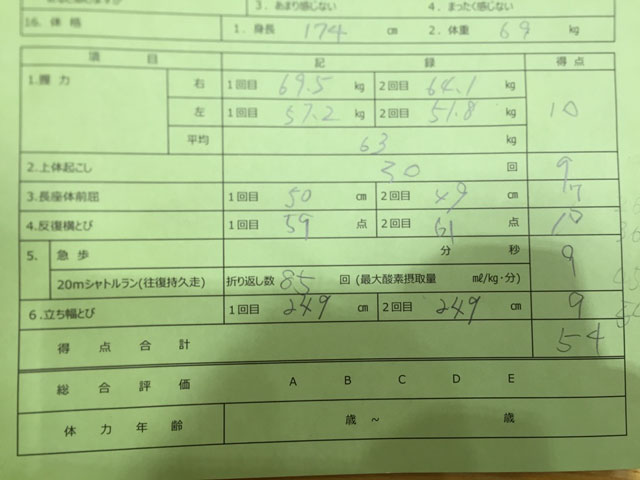 3. あまり感じない 4. まったく感じない
16. 体 格 1. 身長 174 cm 2. 体重 69 kg
項 目 記 録 得 点
1.握 力 右 1回目 69.5 kg 2回目 64.1 kg 10
左 1回目 57.2 kg 2回目 51.8 kg
平均 63 kg
2.上体起こし 30 回 9
3.長座体前屈 1回目 50 cm 2回目 49 cm 7
4.反復横とび 1回目 59 点 2回目 61 点 10
5. 急 歩 分 秒 9
20mシャトルラン(往復持久走) 折り返し数 85 回 (最大酸素摂取量 ml/kg・分)
6.立ち幅とび 1回目 249 cm 2回目 249 cm 9
得 点 合 計 54
総 合 評 価 A B C D E
体 力 年 齢 歳 ~ 歳